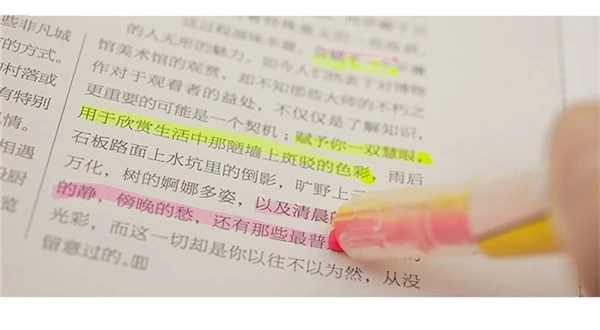 些非凡城
方式。
村落或
有特别
情。
相遇
厨
览
的人无形的魅力。如今人们热衷于对博物
馆美术馆的观赏，却不知那些大师的不朽之
作对于观看者的益处，不仅仅是了解知识，
更重要的可能是一个契机；赋予你一双慧眼，
用于欣赏生活中那陋墙上斑驳的色彩，雨后
石板路面上水坑里的倒影，旷野上
万化，树的婀娜多姿，以及清晨
的静，傍晚的愁，还有那些最普
光彩，而这一切却是你以往不以为然，从没
留意过的。